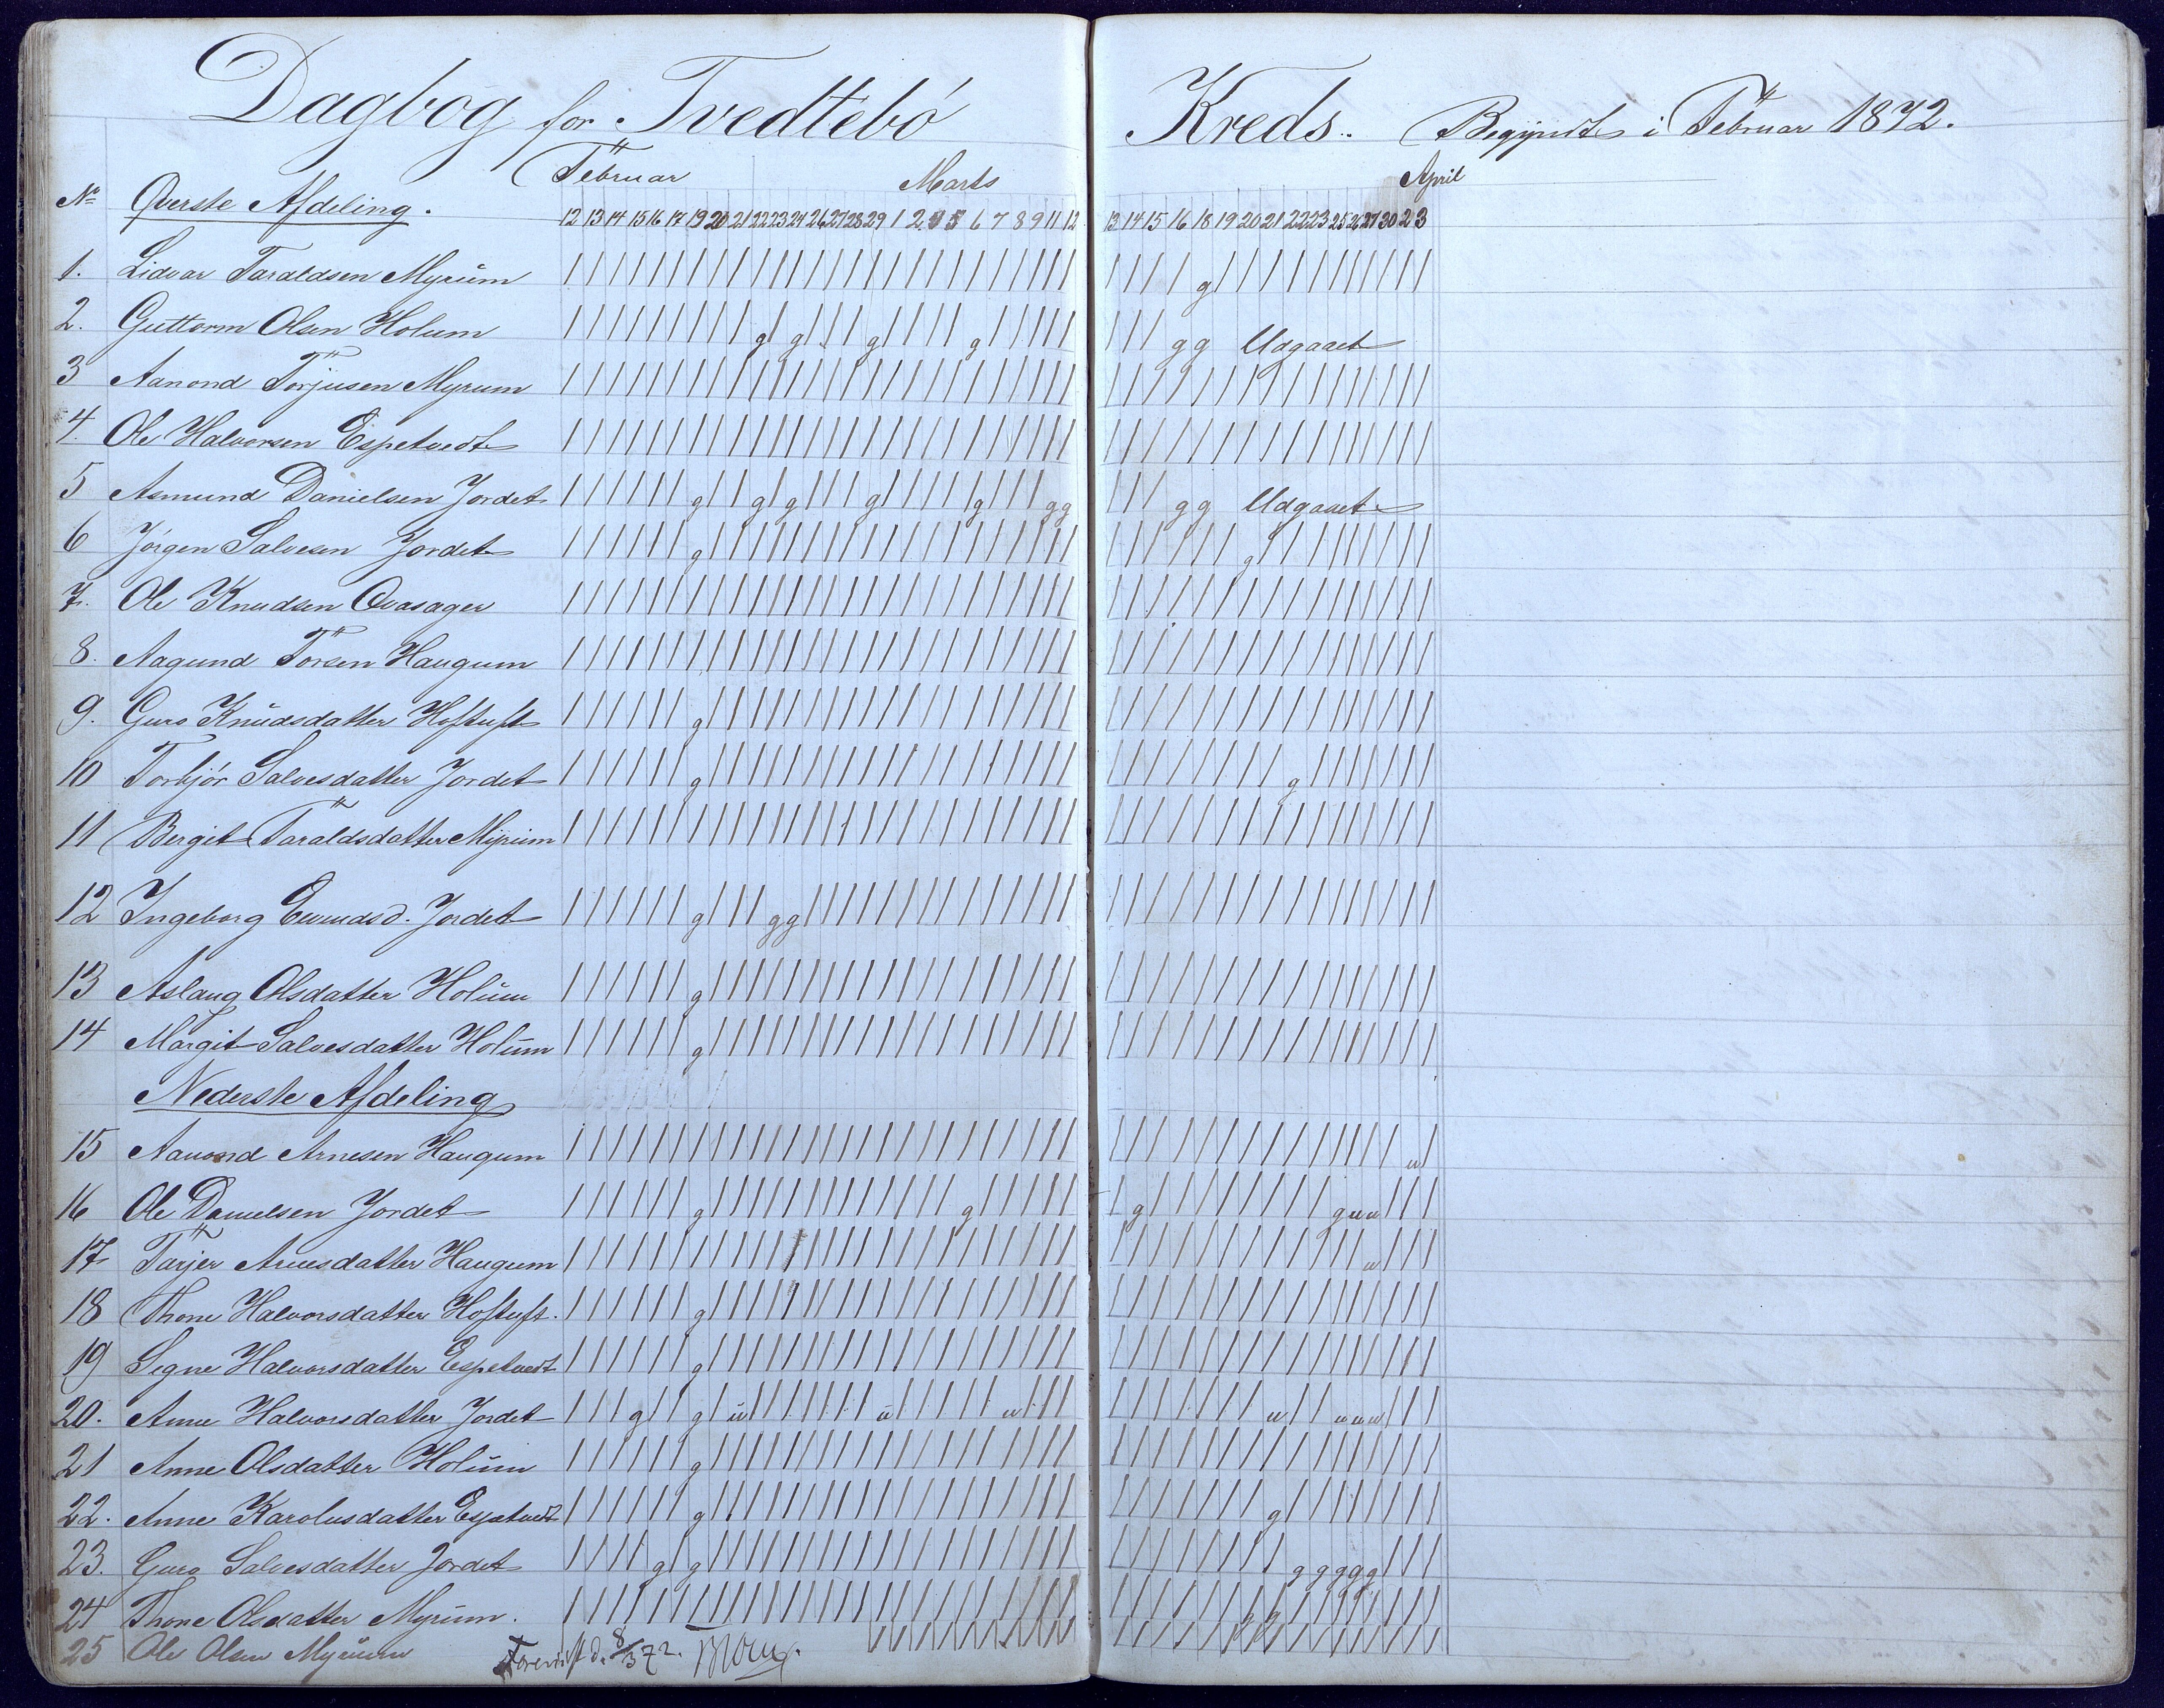 Dagbog for Tvedtebö Kreds. Begyndt i Februar 1872.
Februar Marts April
No Øverste Afdeling. 12 13 14 15 16 17 19 20 21 22 23 24 26 27 28 29 1 2 4 5 6 7 8 9 11 12 13 14 15 16 18 19 20 21 22 23 25 26 27 30 2 3
1. Lidvar Taraldsen Myrum g
2. Guttorm Olsen Holum g g g g g g Udgaaet
3 Aanond Torjusen Myrum
4. Ole Halvorsen Espetvedt
5 Asmund Danielsen Jordet g g g g g g g g g Udgaaet
6 Jörgen Salvesen Jordet g g
7. Ole Knudsen Qvasager
8. Aagund Torsen Haugum
9. Guro Knudsdatter Hoftuft g
10 Torbjör Salvesdatter Jordet g g
11 Bergit Taraldsdatter Myrum
12 Ingeborg Evindsd. Jordet g g g
13 Aslaug Olsdatter Holum g
14 Margit Salvesdatter Holum g
Nederste Afdeling
15 Aanond Arnesen Haugum u
16 Ole Danielsen Jordet g g g g u u
17 Tarjer Arnesdatter Haugum u
18 Thone Halvorsdatter Hoftuft. g
19 Signe Halvorsdatter Espetvedt g
20. Anne Halvorsdatter Jordet g g u u u u u u u
21 Anne Olsdatter Holum g
22. Anne Karolusdatter Espetvedt g g
23. Guro Salvesdatter Jordet g g g g g g g
24 Thone Olsdatter Myrum. g g
25 Ole Olsen Myrum d. 8/3 72.